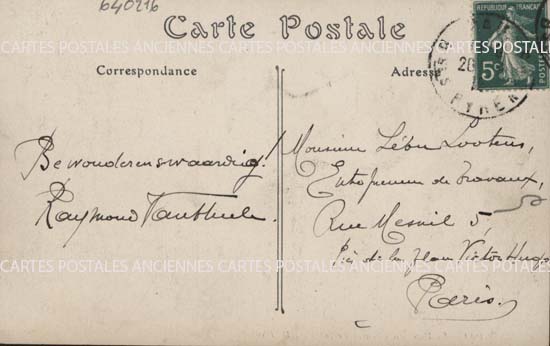 640216
Carte Postale
Correspondance
Adresse
REPUBLIQUE FRANÇAISE
5c
POSTES
20
PYREN
CARTES POSTALES ANCIENNES CARTES POSTALES ANCIENNES CARTES POSTALES
Bewonderenswaardig!
Raymond
Monsieur Lootens,
Entrepreneur de travaux,
Rue Mesnil 5,
Près de la Place Victor Hugo
CARTES POSTALES ANCIENNES CARTES POSTALES ANCIENNES CARTES POSTALES
Paris.